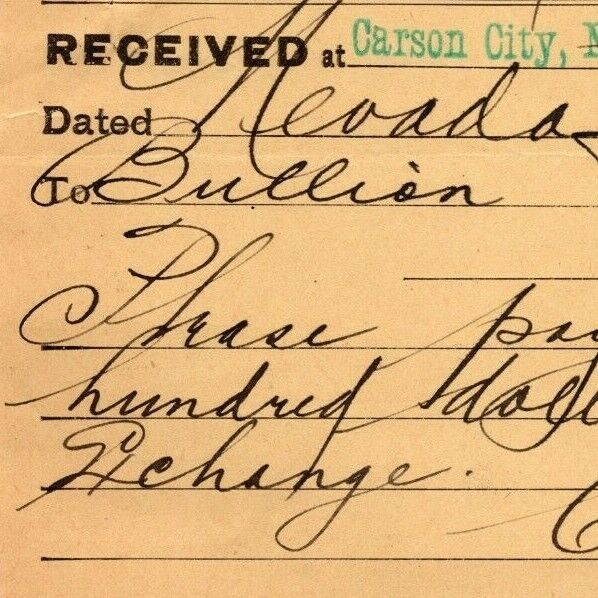 RECEIVED at Carson City, N
Dated Nevada
To Bullion
Please pay
hundred doll
Exchange.